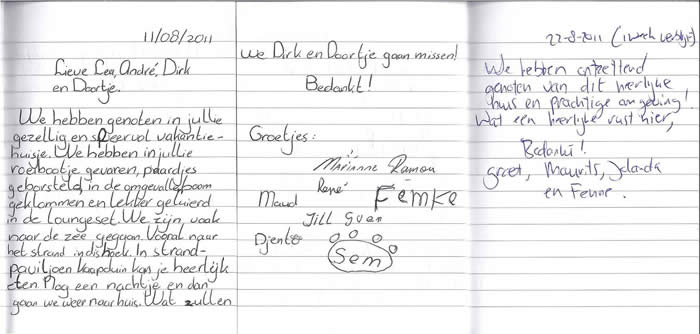 11/08/2011
Lieve Lea, André, Dirk
en Doortje.
We hebben genoten in jullie
gezellig en sfeervol vakantie-
huisje. We hebben in jullie
roeibootje gevaren, paardjes
geborsteld, in de omgevalle boom
geklommen en lekker geluierd
in de loungeset. We zijn vaak
naar de zee gegaan. Vooral naar
het strand in dishoek. In strand-
paviljoen kaapduin kan je heerlijk
eten. Nog een nachtje en dan
gaan we weer naar huis. Wat zullen
we Dirk en Doortje gaan missen!
Bedankt!
Groetjes:
Marianne Ramon
René
Maud Femke
Jill Guen
Djento
Sem
22-8-2011 (1 week verblijf)
We hebben ontzettend
genoten van dit heerlijke
huis en prachtige omgeving!
Wat een heerlijke rust hier,
Bedankt!
groet, Maurits, Jolanda
en Fenne.